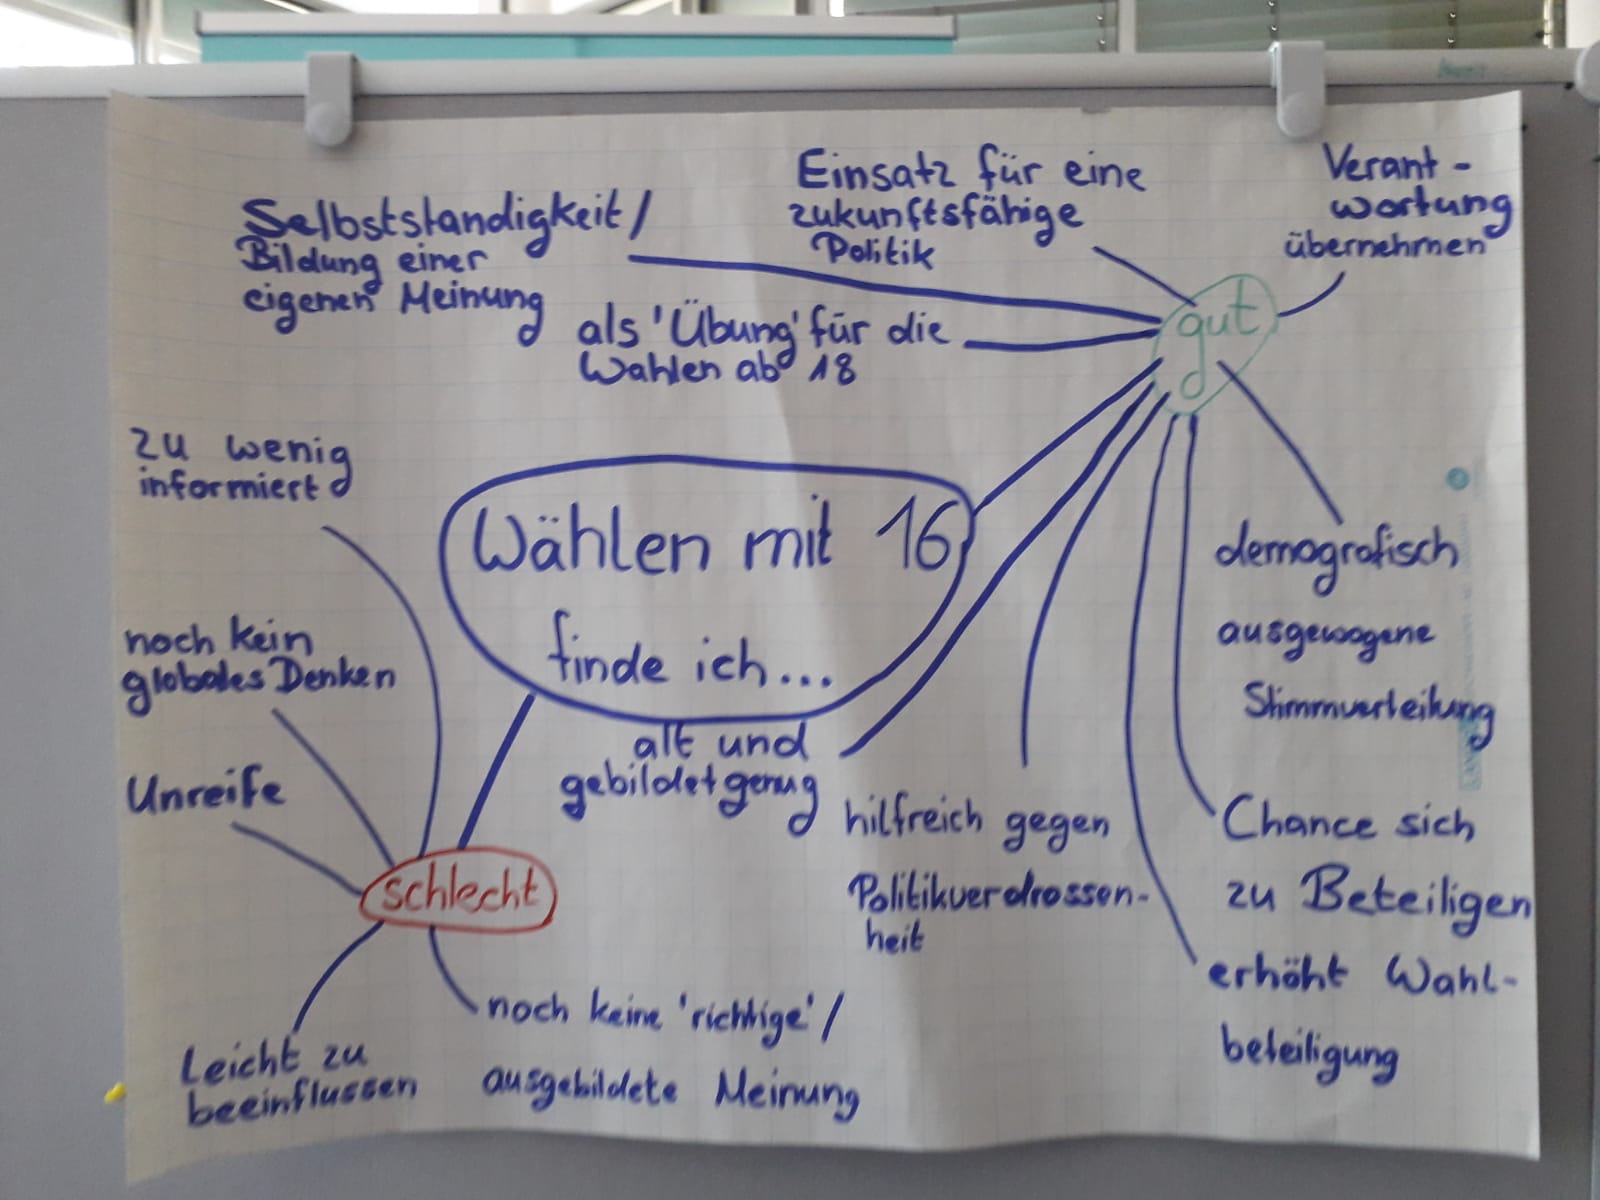 Einsatz für eine
zukunftsfähige
Politik
Verant-
wortung
übernehmen
Selbstständigkeit/
Bildung einer
eigenen Meinung
als 'Übung' für die
Wahlen ab 18
gut
zu wenig
informiert
Wählen mit 16
finde ich...
demografisch
ausgewogene
Stimmverteilung
noch kein
globales Denken
alt und
gebildet genug
Unreife
hilfreich gegen
Politikverdrossen-
heit
Chance sich
zu Beteiligen
schlecht
erhöht Wahl-
beteiligung
noch keine 'richtige'/
ausgebildete Meinung
Leicht zu
beeinflussen